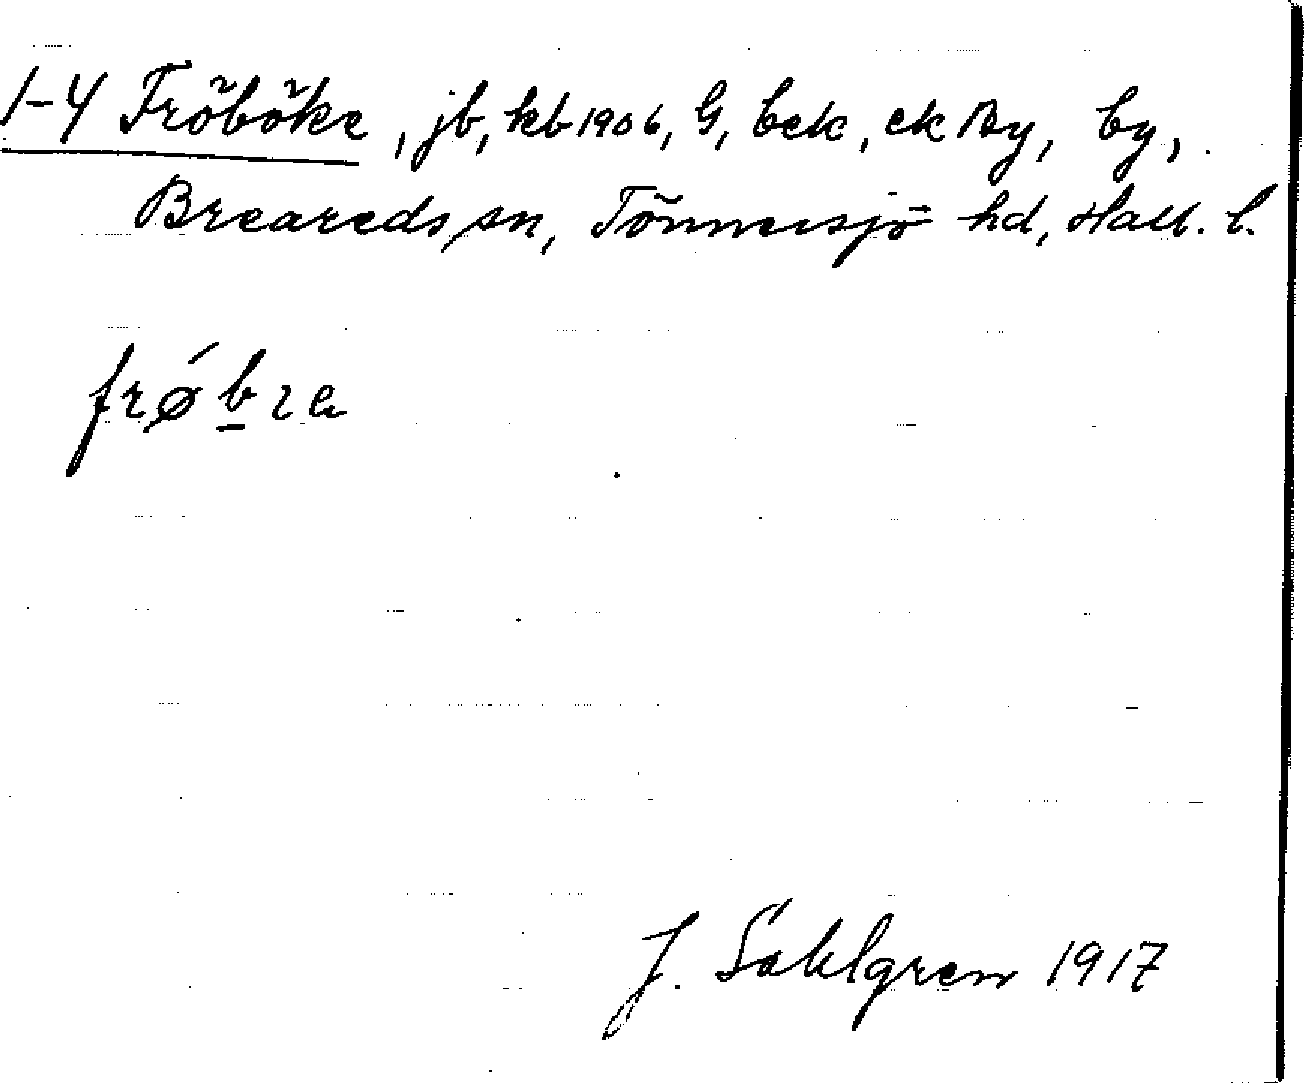 1-4 Fröböke, jb, kb 1906, G, bek, ek Ay, by,
Breareds sn, Tönnersjö hd, Hall. l.
frǿb̲ra
J. Sahlgren 1917